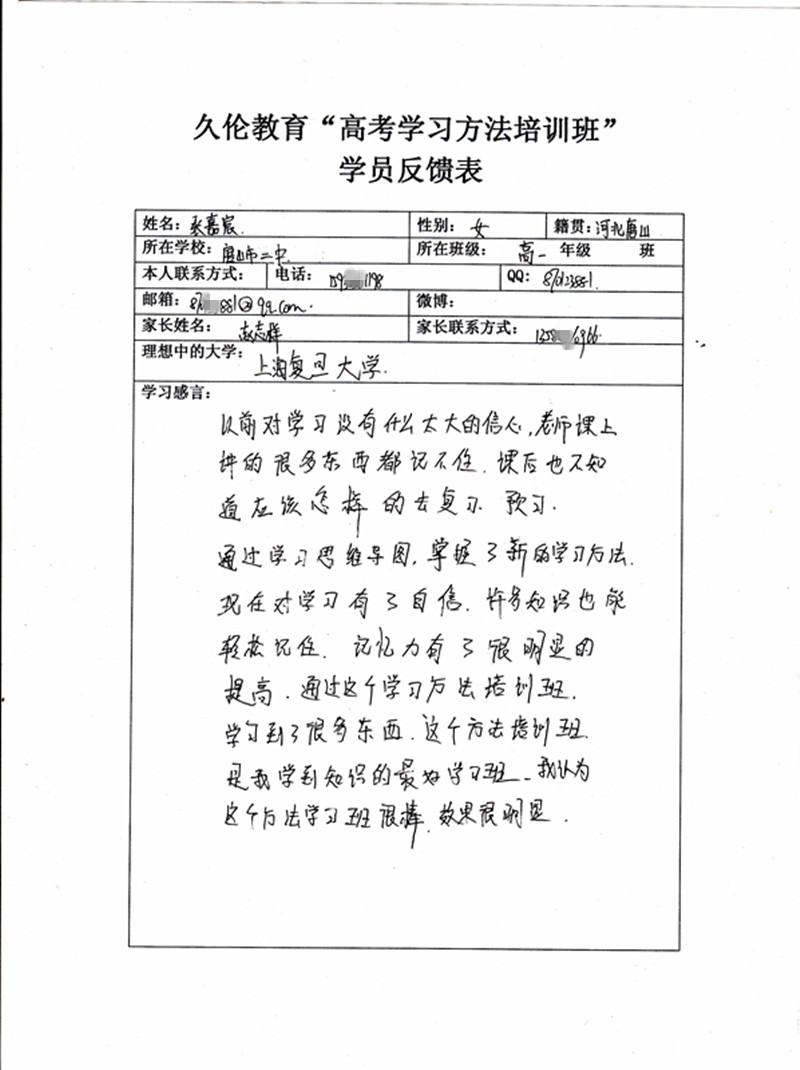 久伦教育“高考学习方法培训班”
学员反馈表
姓名：张嘉宸 性别：女 籍贯：河北唐山
所在学校：唐山市二中 所在班级：高一 年级 班
本人联系方式： 电话： QQ：
邮箱：881@qq.com. 微博：
家长姓名：志辉 家长联系方式：
理想中的大学：上海复旦大学.
学习感言：
以前对学习没有什么太大的信心，老师课上
讲的很多东西都记不住.课后也不知
道应该怎样的去复习.预习.
通过学习思维导图，掌握了新的学习方法.
现在对学习有了自信.许多知识也能
轻松记住.记忆力有了很明显的
提高.通过这个学习方法培训班.
学习到了很多东西.这个方法培训班.
是我学到知识的最好学习班.我认为
这个方法学习班很棒.效果很明显.